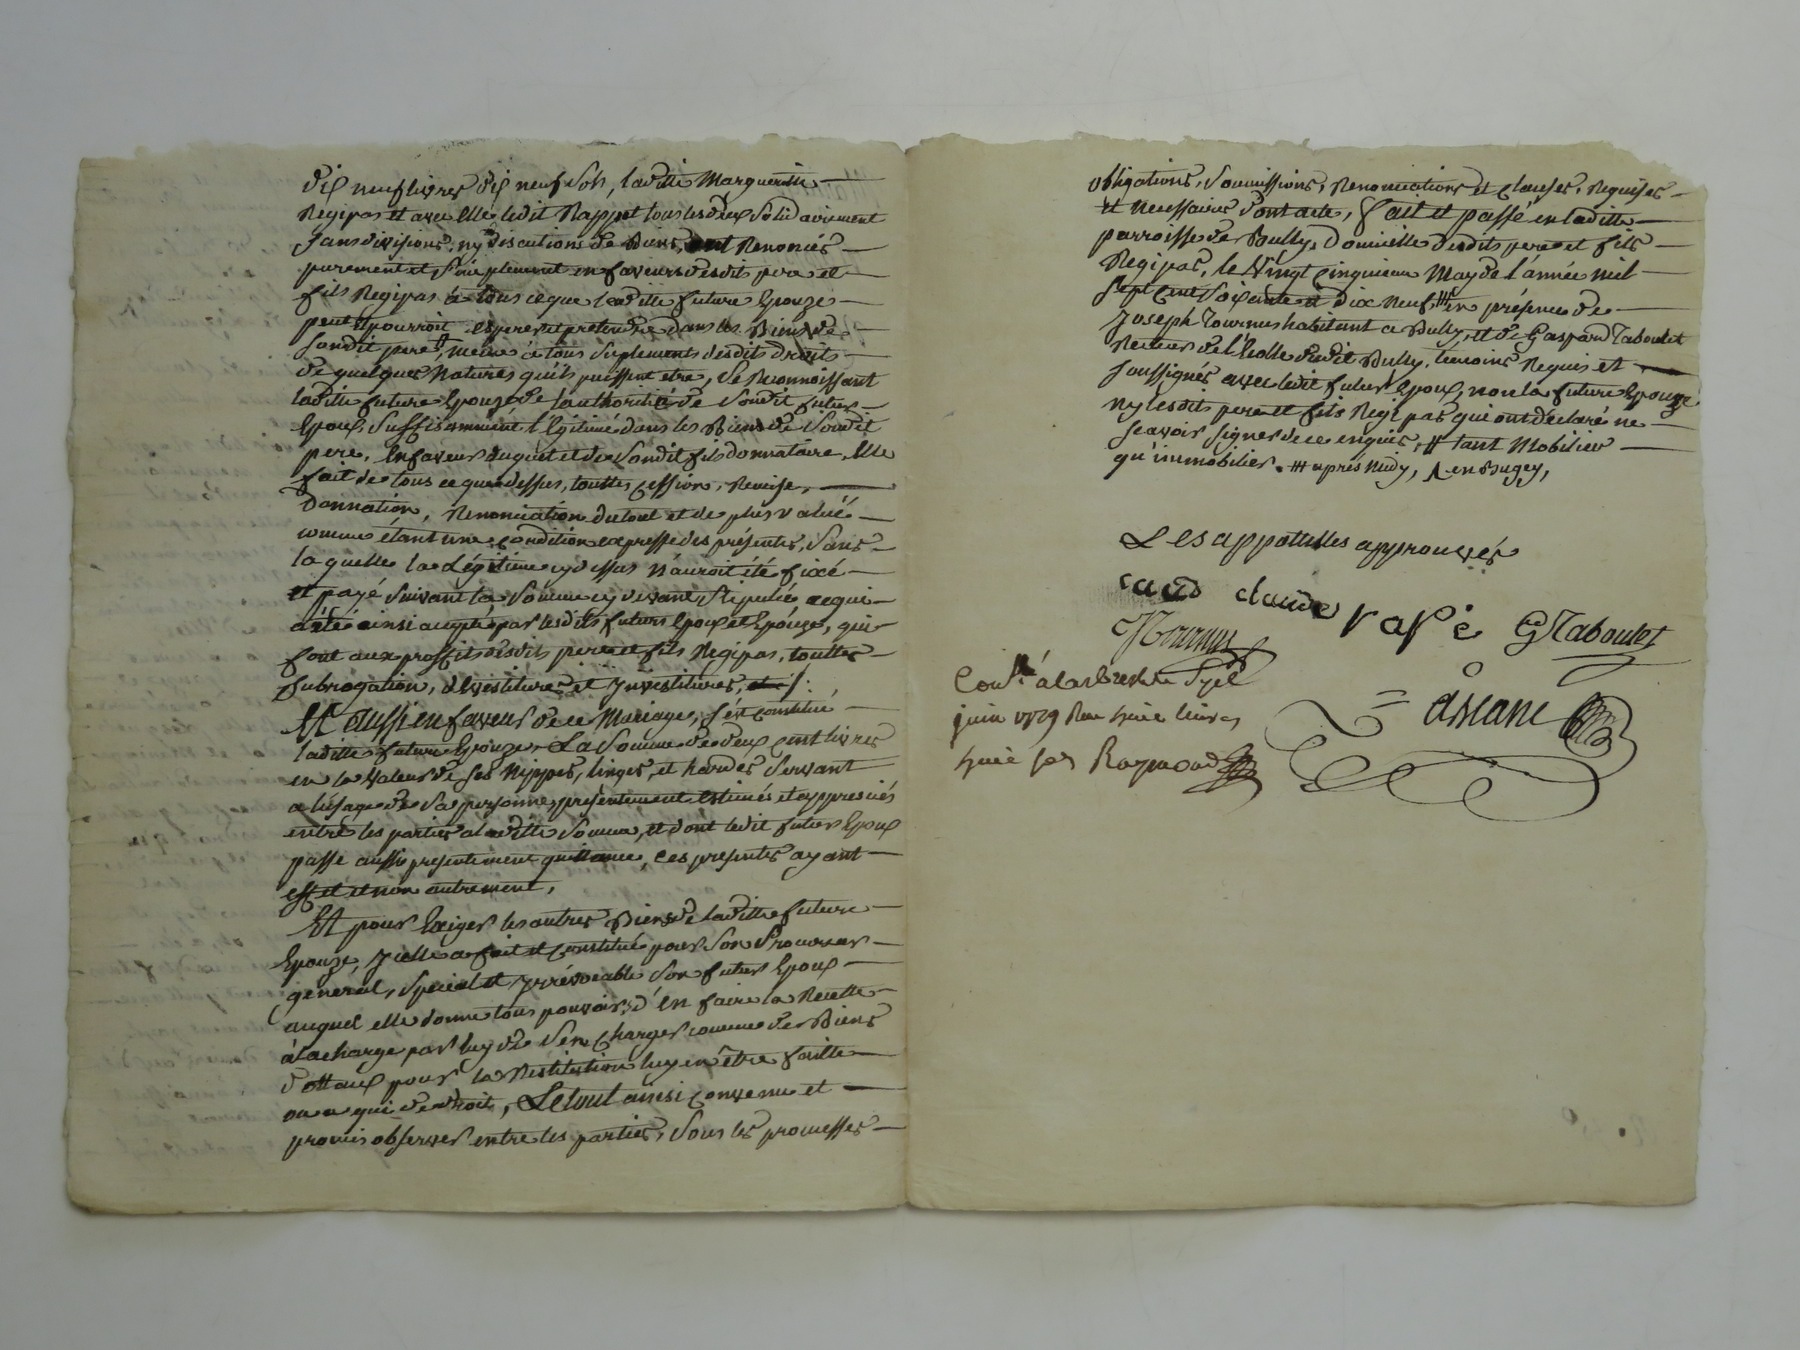 dix neuf livres dix neuf sols, laditte Margueritte
Regipas et avec elle ledit Rappet tous les deux solidairement
sans divisions, ny discutions de Biens, ont Renoncés
purement et simplement en faveurs desdits pere et
fils Regipas à tous ce que laditte future Epouze
peut et pourroit esperer et pretendre dans les Biens de
sondit pere #, meme à tous suplements desdits droits
de quelques Natures qu'ils puissent etre, se Reconnoissant
laditte future Epouze de l'authorité de sondit futur
Epoux, suffisamment légitimé dans les Biens de sondit
pere, en faveur duquel et de sondit fils donnataire, elle
fait de tous ce que dessus, touttes cession, Remise,
Donnation, Renonciation du tout et de plus value
comme étant une condition expresse des présentes, sans
la quelle la Légitime cy dessus n'auroit été fixé
et payé suivant la somme cy devant stipulée ce qui
a été ainsi accepté par lesdits futurs Epoux et Epouze, qui
font aux proffits desdits pere et fils Regipas, touttes
subrogation, devestitures et Investitures,
Et aussi en faveur de ce Mariage, s'est constitué
laditte future Epouze, La somme de deux cent livres
en la valeur de ses Nippes, linges, et hardes servant
a l'usage de sa personne, présentement estimés et appreciés
entre les parties a laditte somme, et dont ledit futur Epoux
passe aussi présentement quittance, ces presentes ayant
effet et non autrement,
Et pour Exiger les autres Biens de laditte future
Epouze, icelle a fait et constitué pour son Procureur
general, special et Irrévocable son futur Epoux
auquel elle donne tous pouvoirs d'en faire la Recette
à la charge par luy de s'en charger comme de Biens
dottaux pour la Restitution luy en être faitte
ou a qui de droit, Le tout ainsi convenu et
promis observer entre les parties, sous les promesses
obligations, soumissions, Renonciations et clauses, Requises
et Necessaires dont acte, fait et passé en laditte
parroisse de Bully, Domicille desdits pere et fils
Regipas, le Vingt cinquieme May de l'année mil
sept cent soixante et dix Neuf ## en présence de
Joseph Tournus habitant a Bully, et de Gaspard Taboulet
Recteur de l'Ecolle dudit Bully, témoins Requis et
soussignés avec ledit futur Epoux, non la future Epouze
ny lesdits pere et fils Regipas qui ont declaré ne
scavoir signer de ce enquis, # tant Mobilier
qu'immobilier. ## apres midy, Λ en Bugey,
Les appostilles approuvés
claude rapé GTaboulet
JTournus
Con.lé à Larbresle le
juin 1779 Reçu huit livres
huit sols Raymond